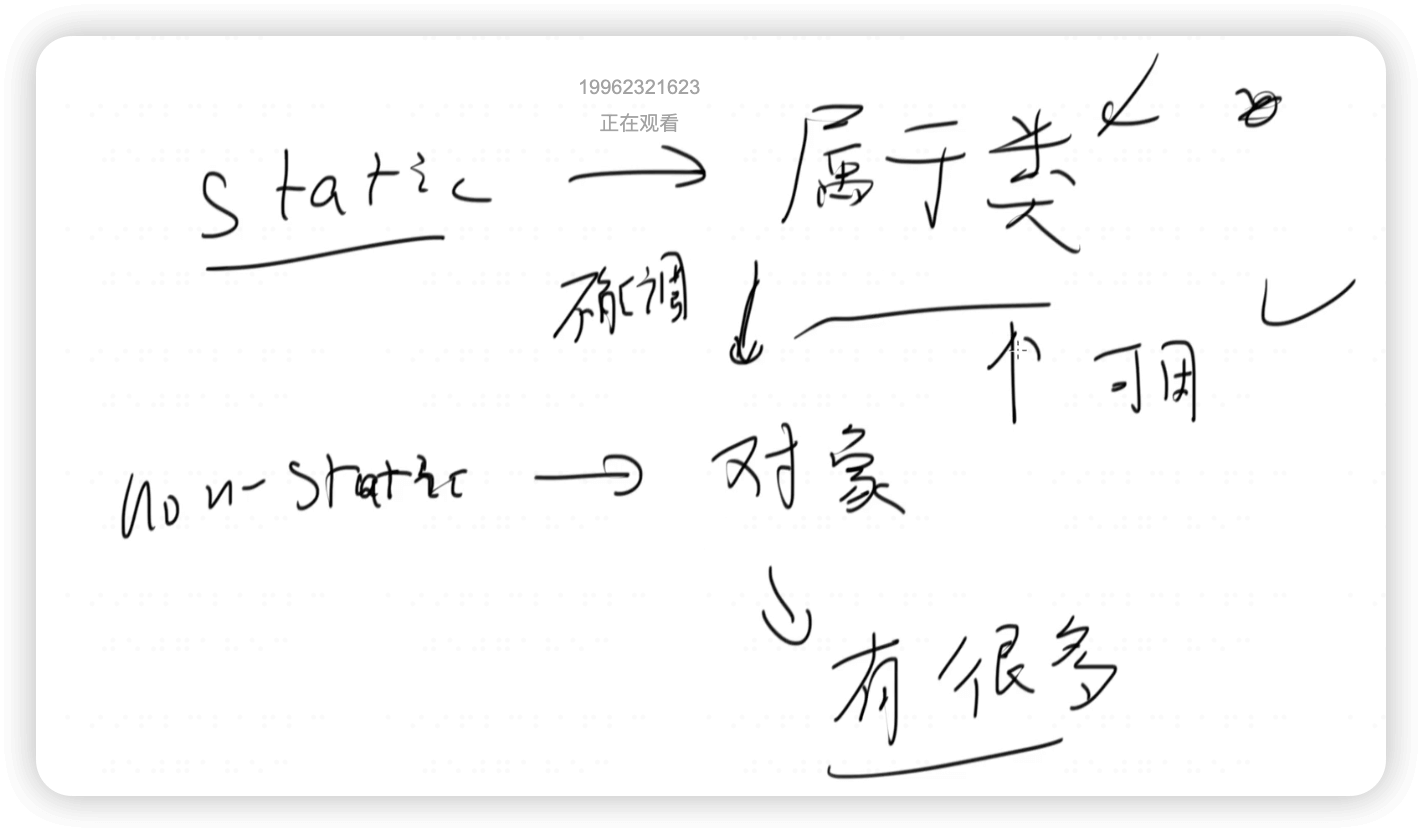 19962321623
正在观看
static → 属于类
不能调
↓
↑ 可用
non-static → 对象
↓
有很多